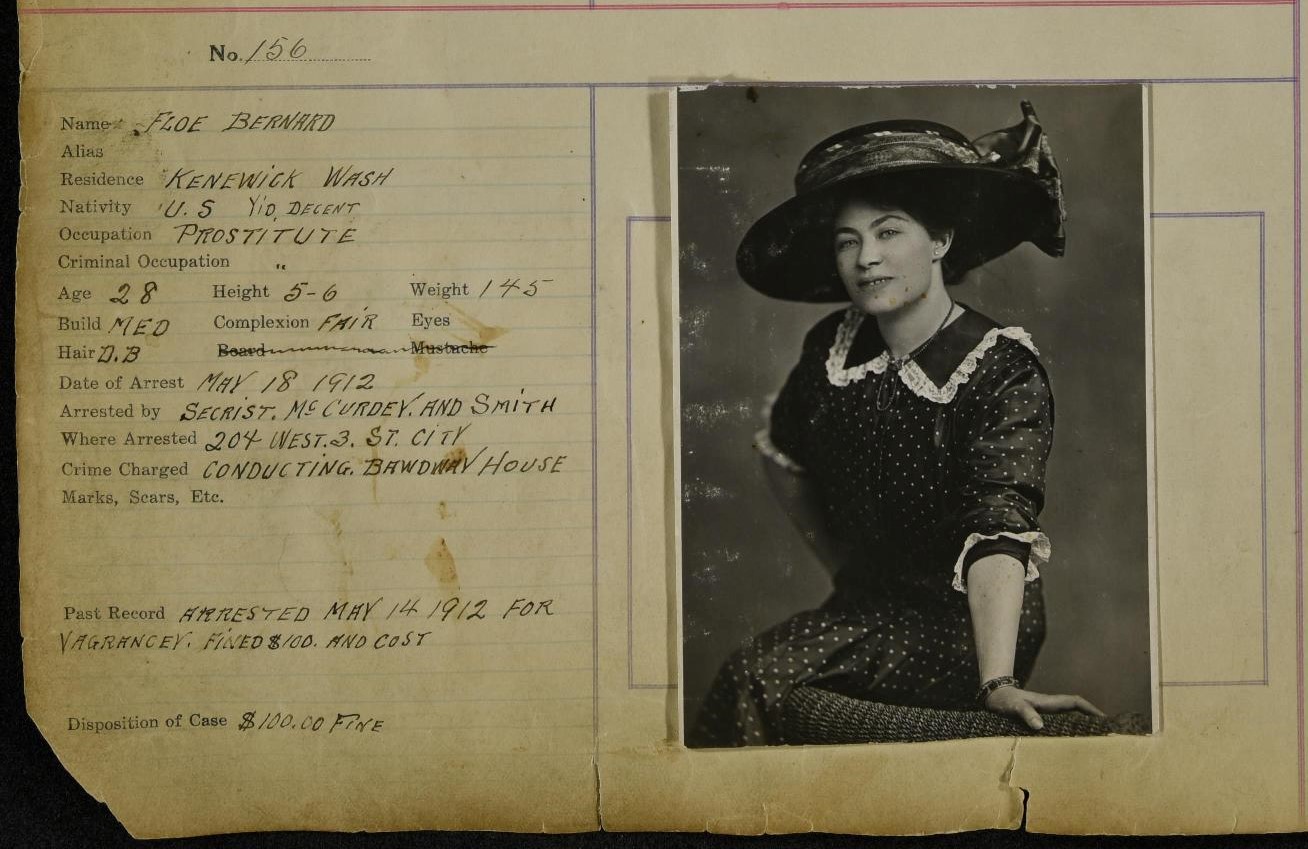 No. 156
Name FLOE BERNARD
Alias
Residence KENEWICK WASH
Nativity U.S YID, DECENT
Occupation PROSTITUTE
Criminal Occupation "
Age 28 Height 5-6 Weight 145
Build MED Complexion FAIR Eyes
Hair D.B Beard Mustache
Date of Arrest MAY 18 1912
Arrested by SECRIST. McCURDEY. AND SMITH
Where Arrested 204 WEST. 3. ST. CITY
Crime Charged CONDUCTING. BAWDWAY HOUSE
Marks, Scars, Etc.
Past Record ARRESTED MAY 14 1912 FOR
VAGRANCEY. FINED $100. AND COST
Disposition of Case $100.00 FINE